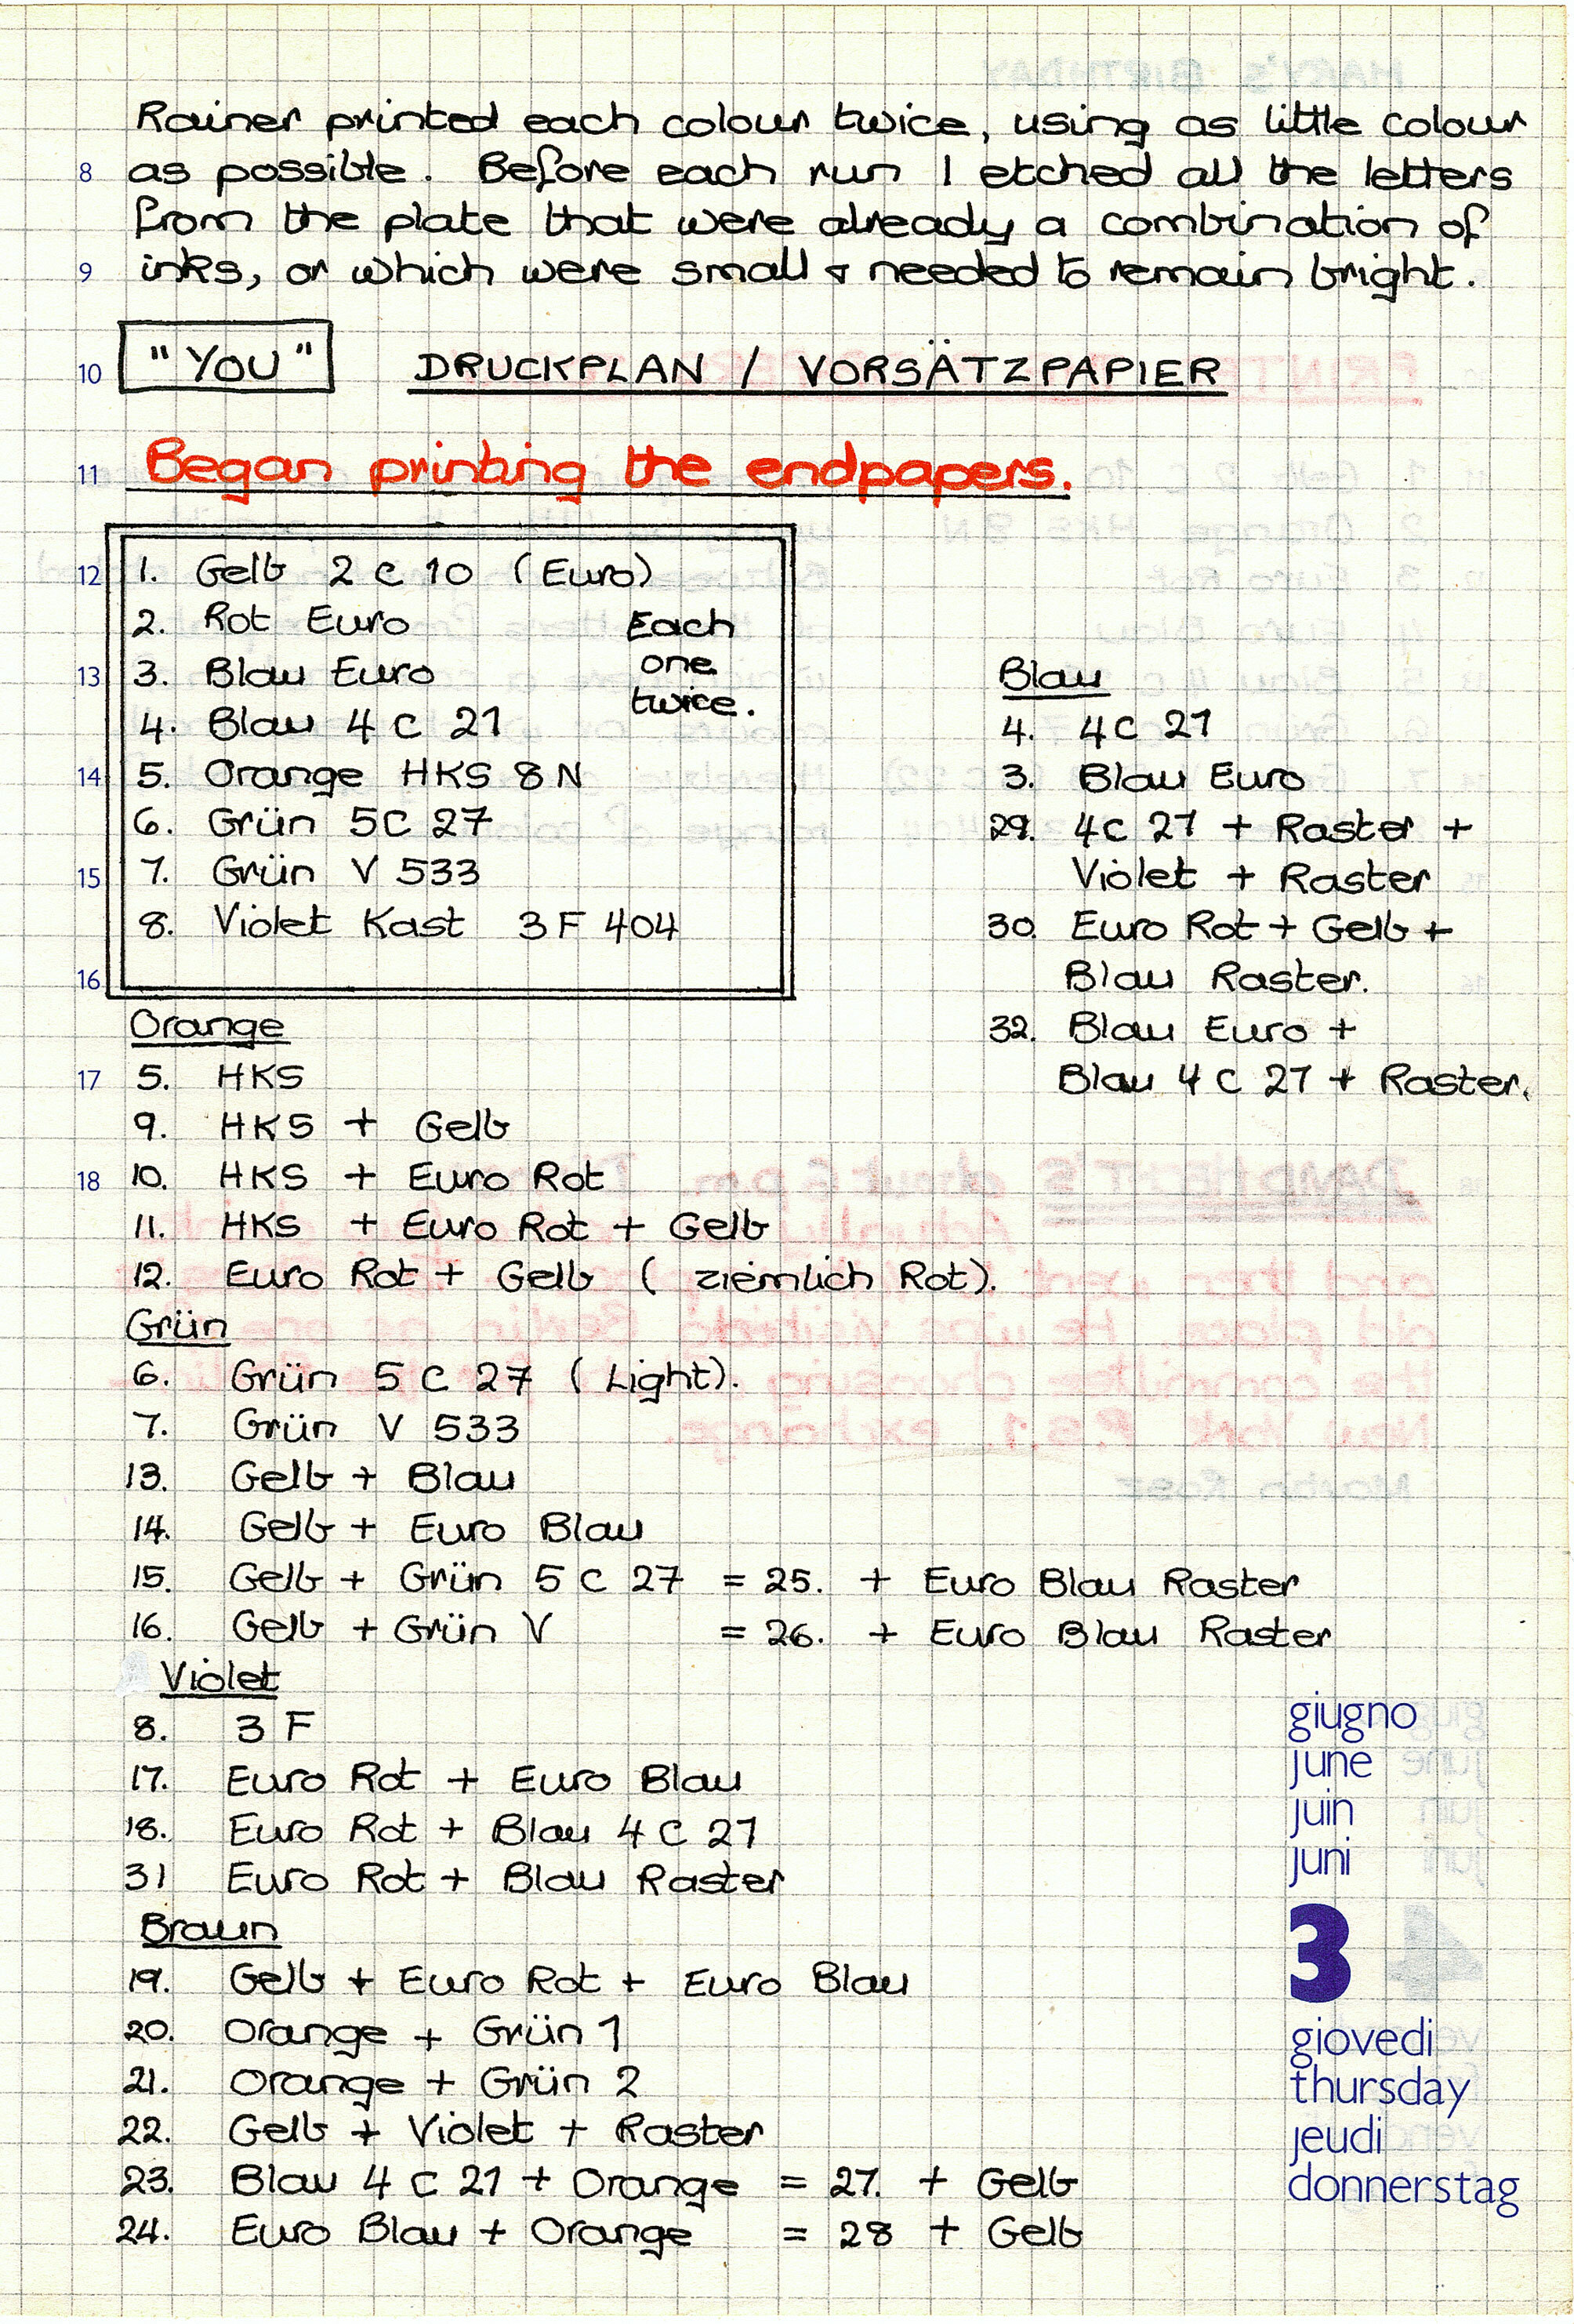 Rainer printed each colour twice, using as little colour
8 as possible. Before each run I etched all the letters
from the plate that were already a combination of
9 inks, or which were small & needed to remain bright.
10 "YOU" DRUCKPLAN / VORSÄTZPAPIER
11 Began printing the endpapers.
12 1. Gelb 2 C 10 (Euro)
2. Rot Euro
13 3. Blau Euro
4. Blau 4 C 21
14 5. Orange HKS 8 N
6. Grün 5C 27
15 7. Grün V 533
8. Violet Kast 3 F 404
16
Each
one
twice.
Blau
4. 4C 21
3. Blau Euro
29. 4C 21 + Raster +
Violet + Raster
30. Euro Rot + Gelb +
Blau Raster.
32. Blau Euro +
Blau 4 C 21 + Raster.
Orange
17 5. HKS
9. HKS + Gelb
18 10. HKS + Euro Rot
11. HKS + Euro Rot + Gelb
12. Euro Rot + Gelb (ziemlich Rot).
Grün
6. Grün 5 C 27 (Light).
7. Grün V 533
13. Gelb + Blau
14. Gelb + Euro Blau
15. Gelb + Grün 5 C 27 = 25. + Euro Blau Raster
16. Gelb + Grün V = 26. + Euro Blau Raster
Violet
8. 3 F
17. Euro Rot + Euro Blau
18. Euro Rot + Blau 4 C 21
31 Euro Rot + Blau Raster
Braun
19. Gelb + Euro Rot + Euro Blau
20. Orange + Grün 1
21. Orange + Grün 2
22. Gelb + Violet + Raster
23. Blau 4 C 21 + Orange = 27. + Gelb
24. Euro Blau + Orange = 28 + Gelb
giugno
june
juin
juni
3
giovedi
thursday
jeudi
donnerstag